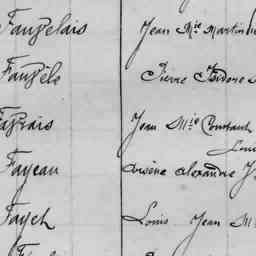 Fauzelais Jean Mie Martin
Fauzèle Pierre Isidore
Favrais Jean Mie Constant
Louis
Fayeau Arsène Alexandre
Fayet Louis Jean M